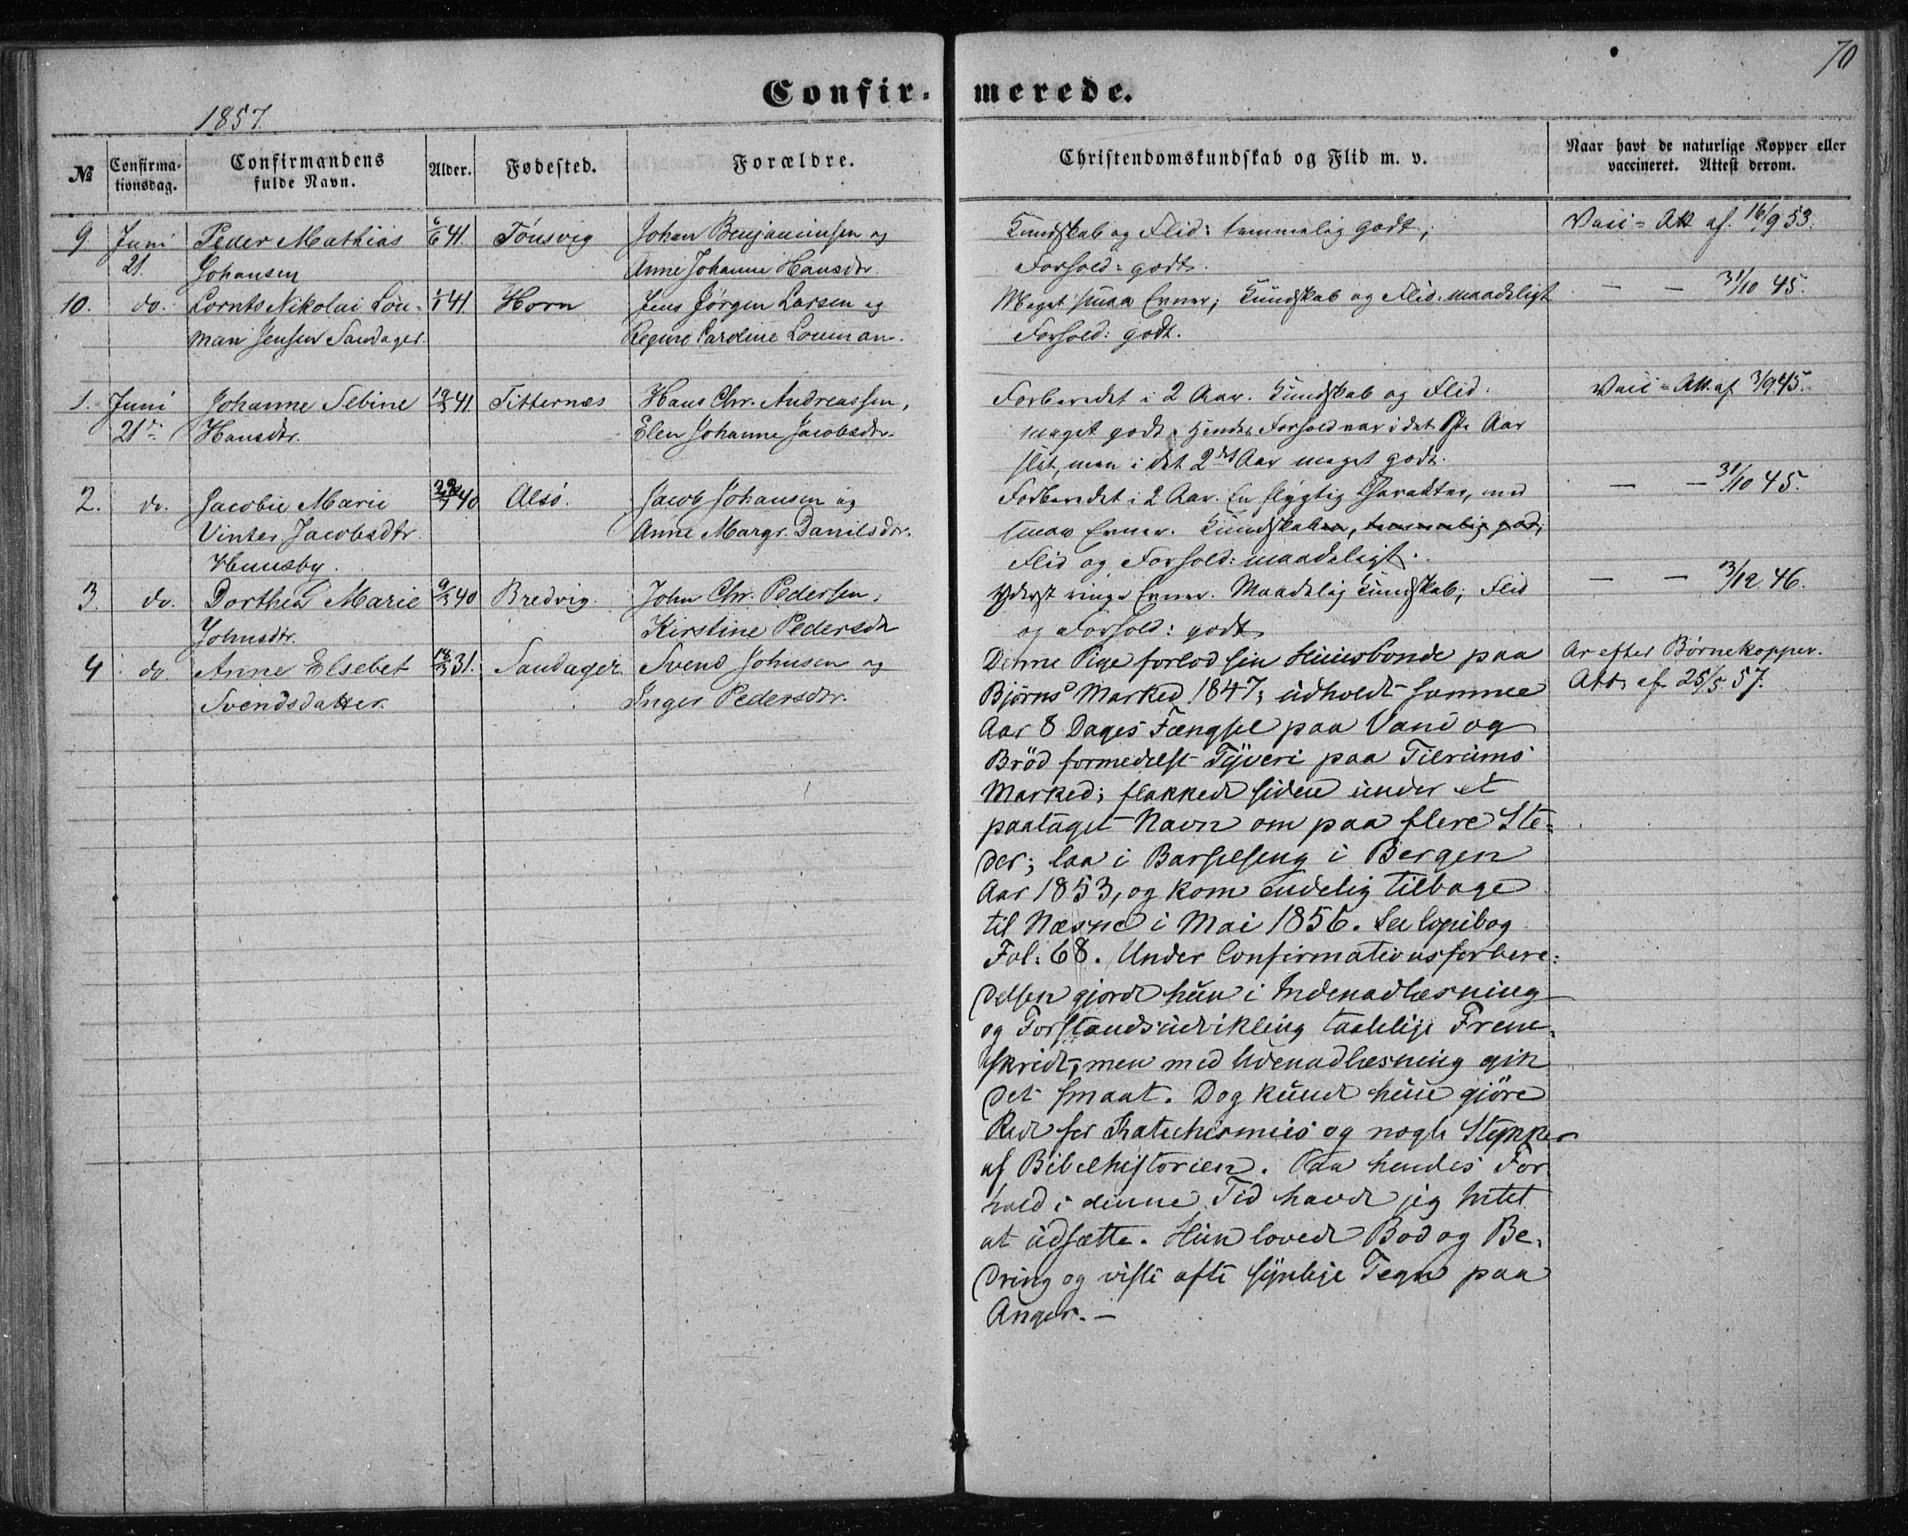 70
Confirmerede.
1857.
№ Confirmationsdag. Confirmandens fulde Navn. Alder. Fødested. Forældre. Christendomskundskab og Flid m. v. Naar havt de naturlige Kopper eller vaccineret. Attest derom.
9. Juni Peder Mathias 6/6 41. Tønsvig Johan Benjaminsen og Kundskab og Flid: temmelig godt; Vacc = Att af. 16/9 53.
21. Johansen Anne Johanne Hansdtr. Forhold: godt.
10. do. Lornts Nikolai Lou- 1/1 41. Horn Jens Jørgen Larsen og Meget smaa Evner; Kundskab og Flid: maadeligt — — 31/10 45.
man Jensen Sandager. Regine Caroline Louman. Forhold: godt.
1. Juni Johanne Sebine 19/3 41. Titternæs Hans Chr. Andreassen, Forberedet i 2 Aar. Kundskab og Flid: Vacc = Att. af 3/9 45.
21de Hansdtr. Elen Johanne Jacobsdtr. meget godt. Hendes Forhold var i det 1ste Aar
slet, men i det 2det Aar meget godt.
2. do. Jacobie Marie 22/7 40 Alsø. Jacob Johansen og Forberedet i 2 Aar. En flygtig Charakter, med — — 31/10 45.
Vinter Jacobsdtr. Anne Margr. Danilsdtr. smaa Evner. Kundskaben, temmelig god;
Hemnsby. Flid og Forhold: maadeligt.
3. do. Dorthea Marie 9/3 40 Bredvig. John Chr. Pedersen, Yderst ringe Evner. Maadelig Kundskab; Flid — — 3/12 46.
Johnsdtr. Kirstine Pedersdtr og Forhold: godt
4. do. Anne Elsebet 18/3 31. Sandager. Svend Johnsen og Denne Pige forlod sin Huusbonde paa Ar efter Børnekopper.
Svendsdatter. Inger Pedersdtr. Bjørns Marked 1847; udholdt samme Att. af 25/5 57.
Aar 8 Dages Fængsel paa Vand og
Brød formedelst Tyveri paa Tilrums
Marked; flakkede siden under et
paataget Navn om paa flere Ste-
der; laa i Barselseng i Bergen
Aar 1853, og kom endelig tilbage
til Næsne i Mai 1856. See Copibog
Fol: 68. Under Confirmationsforbere-
delsen gjorde hun i Indenadlæsning
og Forstandsudvikling taalelige Frem-
skridt; men med Udenadlæsning gik
det smaat. Dog kunde hun gjøre
Rede for Katechismus og nogle Stykker
af Bibelhistorien. Paa hendes For
hold i denne Tid havde jeg Intet
at udsætte. Hun lovede Bod og Be-
dring og viste ofte synlige Tegn paa
Anger. —